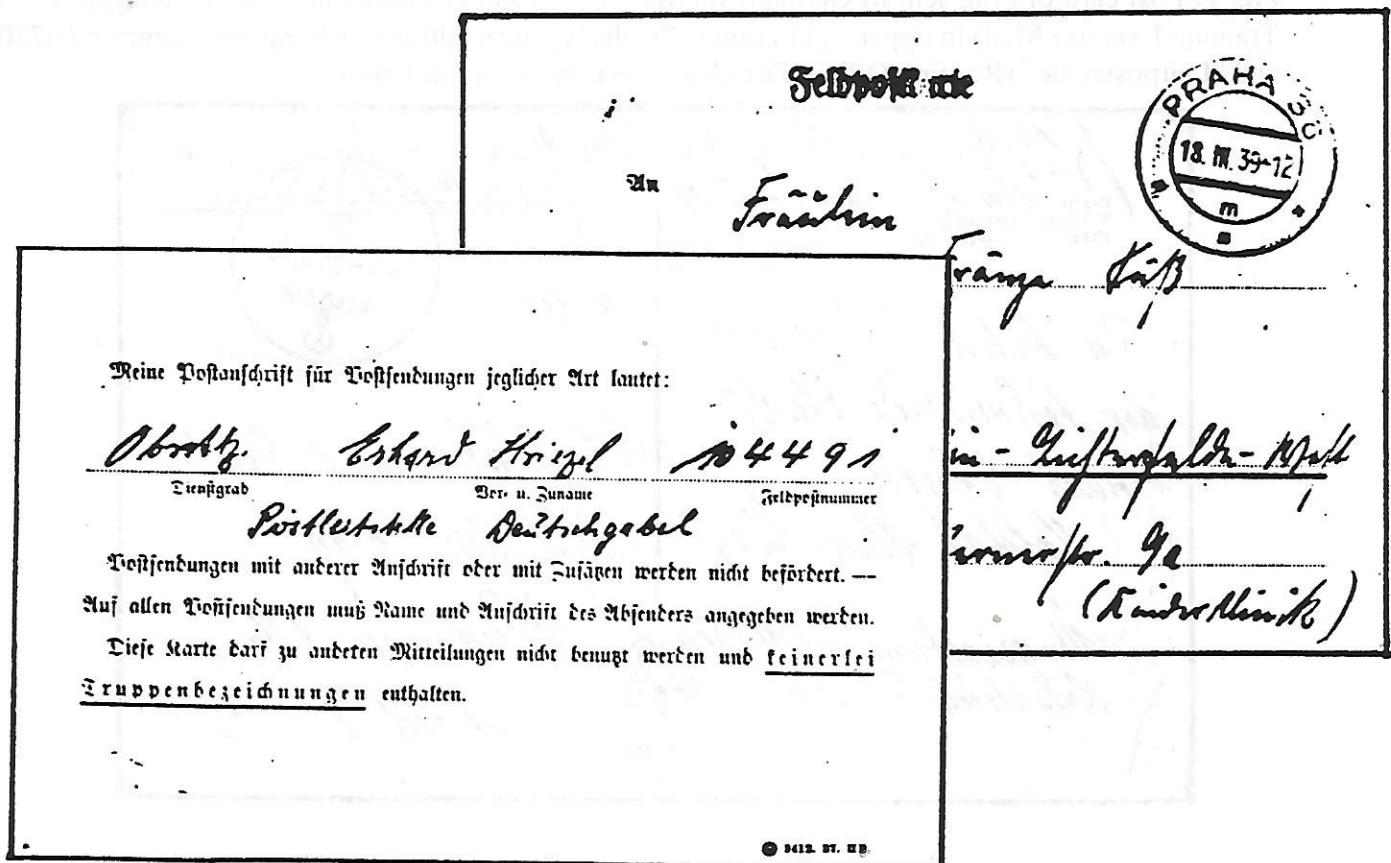 Feldpostkarte
PRAHA 3
18. III. 39-12
m
An
Fräulein
Fränze Küß
in-Lichterfelde-West
str. 9a
(Kinderklinik)
Meine Postanschrift für Postsendungen jeglicher Art lautet:
Erhard Striezel 04491
Dienstgrad Vor- u. Zuname Feldpostnummer
Deutschgabel
Postsendungen mit anderer Anschrift oder mit Zusätzen werden nicht befördert. —
Auf allen Postsendungen muß Name und Anschrift des Absenders angegeben werden.
Diese Karte darf zu anderen Mitteilungen nicht benutzt werden und keinerlei
Truppenbezeichnungen enthalten.